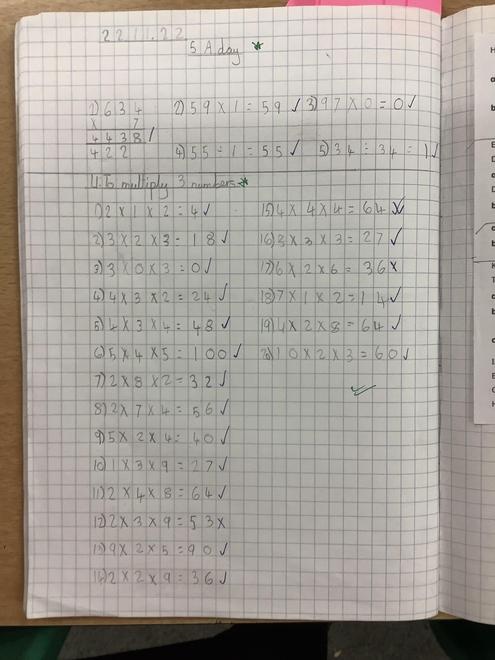 22.11.22
5 A day
1) 634 2) 59 x 1 = 59 ✓ 3) 97 x 0 = 0 ✓
x 7
4438 ✓
422 4) 55 ÷ 1 = 55 ✓ 5) 34 ÷ 34 = 1 ✓
L1: To multiply 3 numbers
1) 2 x 1 x 2 = 4 ✓
2) 3 x 2 x 3 = 18 ✓
3) 3 x 0 x 3 = 0 ✓
4) 4 x 3 x 2 = 24 ✓
5) 4 x 3 x 4 = 48 ✓
6) 5 x 4 x 5 = 100 ✓
7) 2 x 8 x 2 = 32 ✓
8) 2 x 7 x 4 = 56 ✓
9) 5 x 2 x 4 = 40 ✓
10) 1 x 3 x 9 = 27 ✓
11) 2 x 4 x 8 = 64 ✓
12) 2 x 3 x 9 = 53 x
13) 9 x 2 x 5 = 90 ✓
14) 2 x 2 x 9 = 36 ✓
15) 4 x 4 x 4 = 64 ✓
16) 3 x 3 x 3 = 27 ✓
17) 6 x 2 x 6 = 36 x
18) 7 x 1 x 2 = 14 ✓
19) 4 x 2 x 8 = 64 ✓
20) 10 x 2 x 3 = 60 ✓